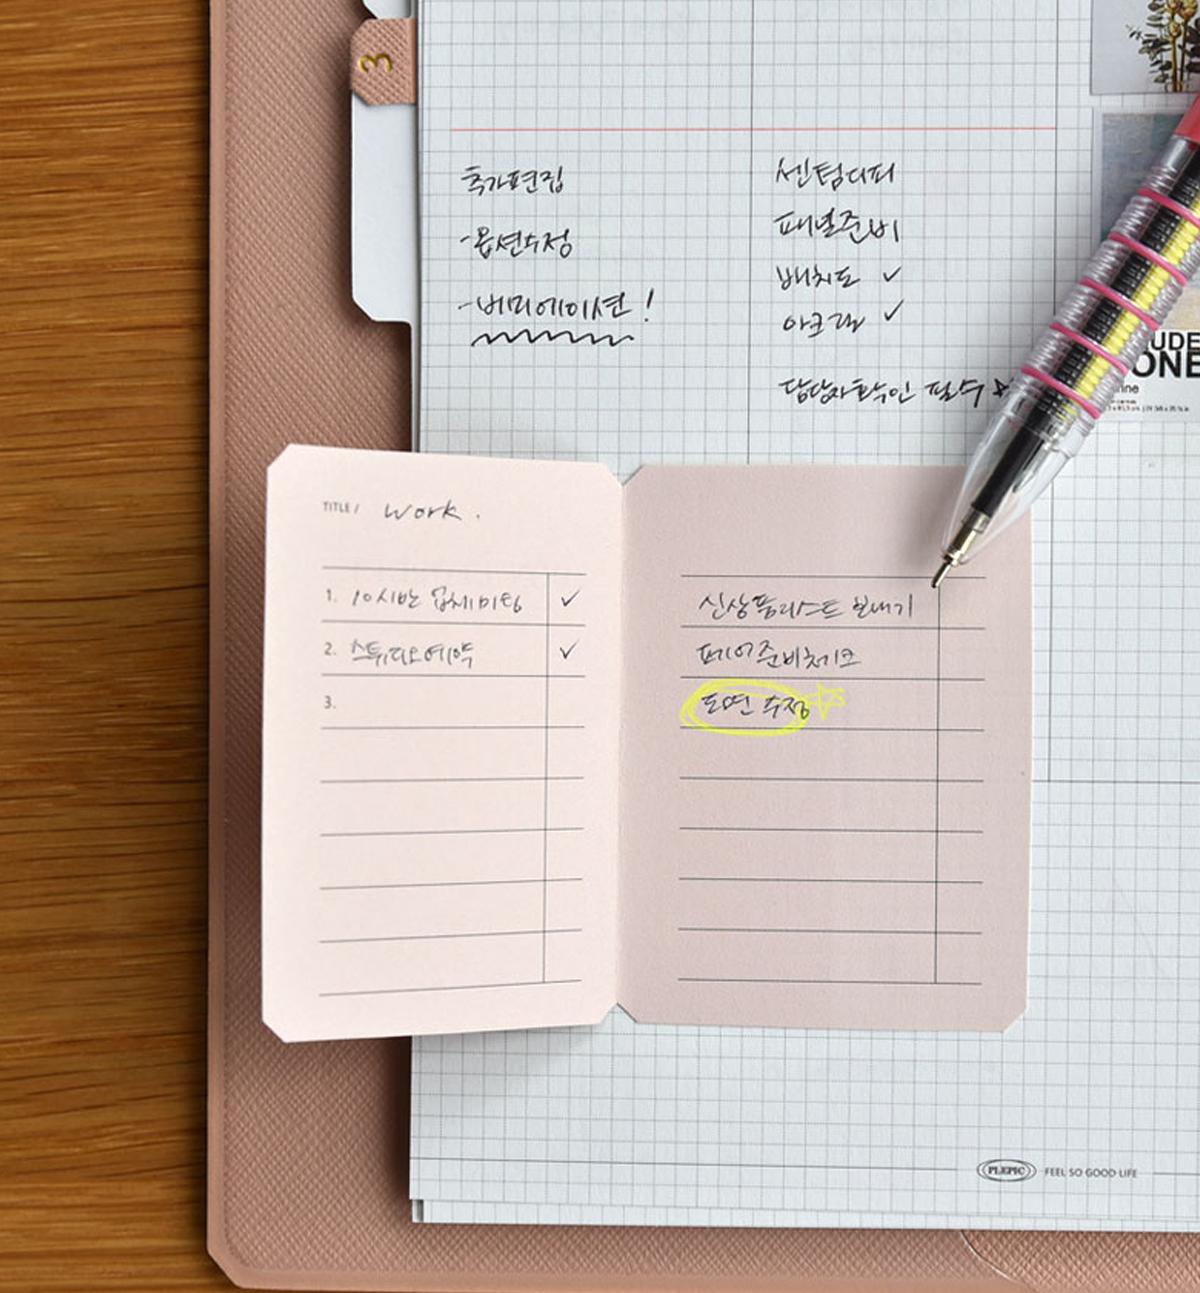 3
추가편집
-옵션수정
-버리에이션!
센텀디피
패널준비
배치도 ✓
아크릴 ✓
담당자확인 필수
UDE
ONE
TITLE / work.
1. 10시반 업체미팅 ✓
2. 스튜디오예약 ✓
3.
신상품리스트 보내기
페어준비체크
도면 수정
PLEPIC FEEL SO GOOD LIFE